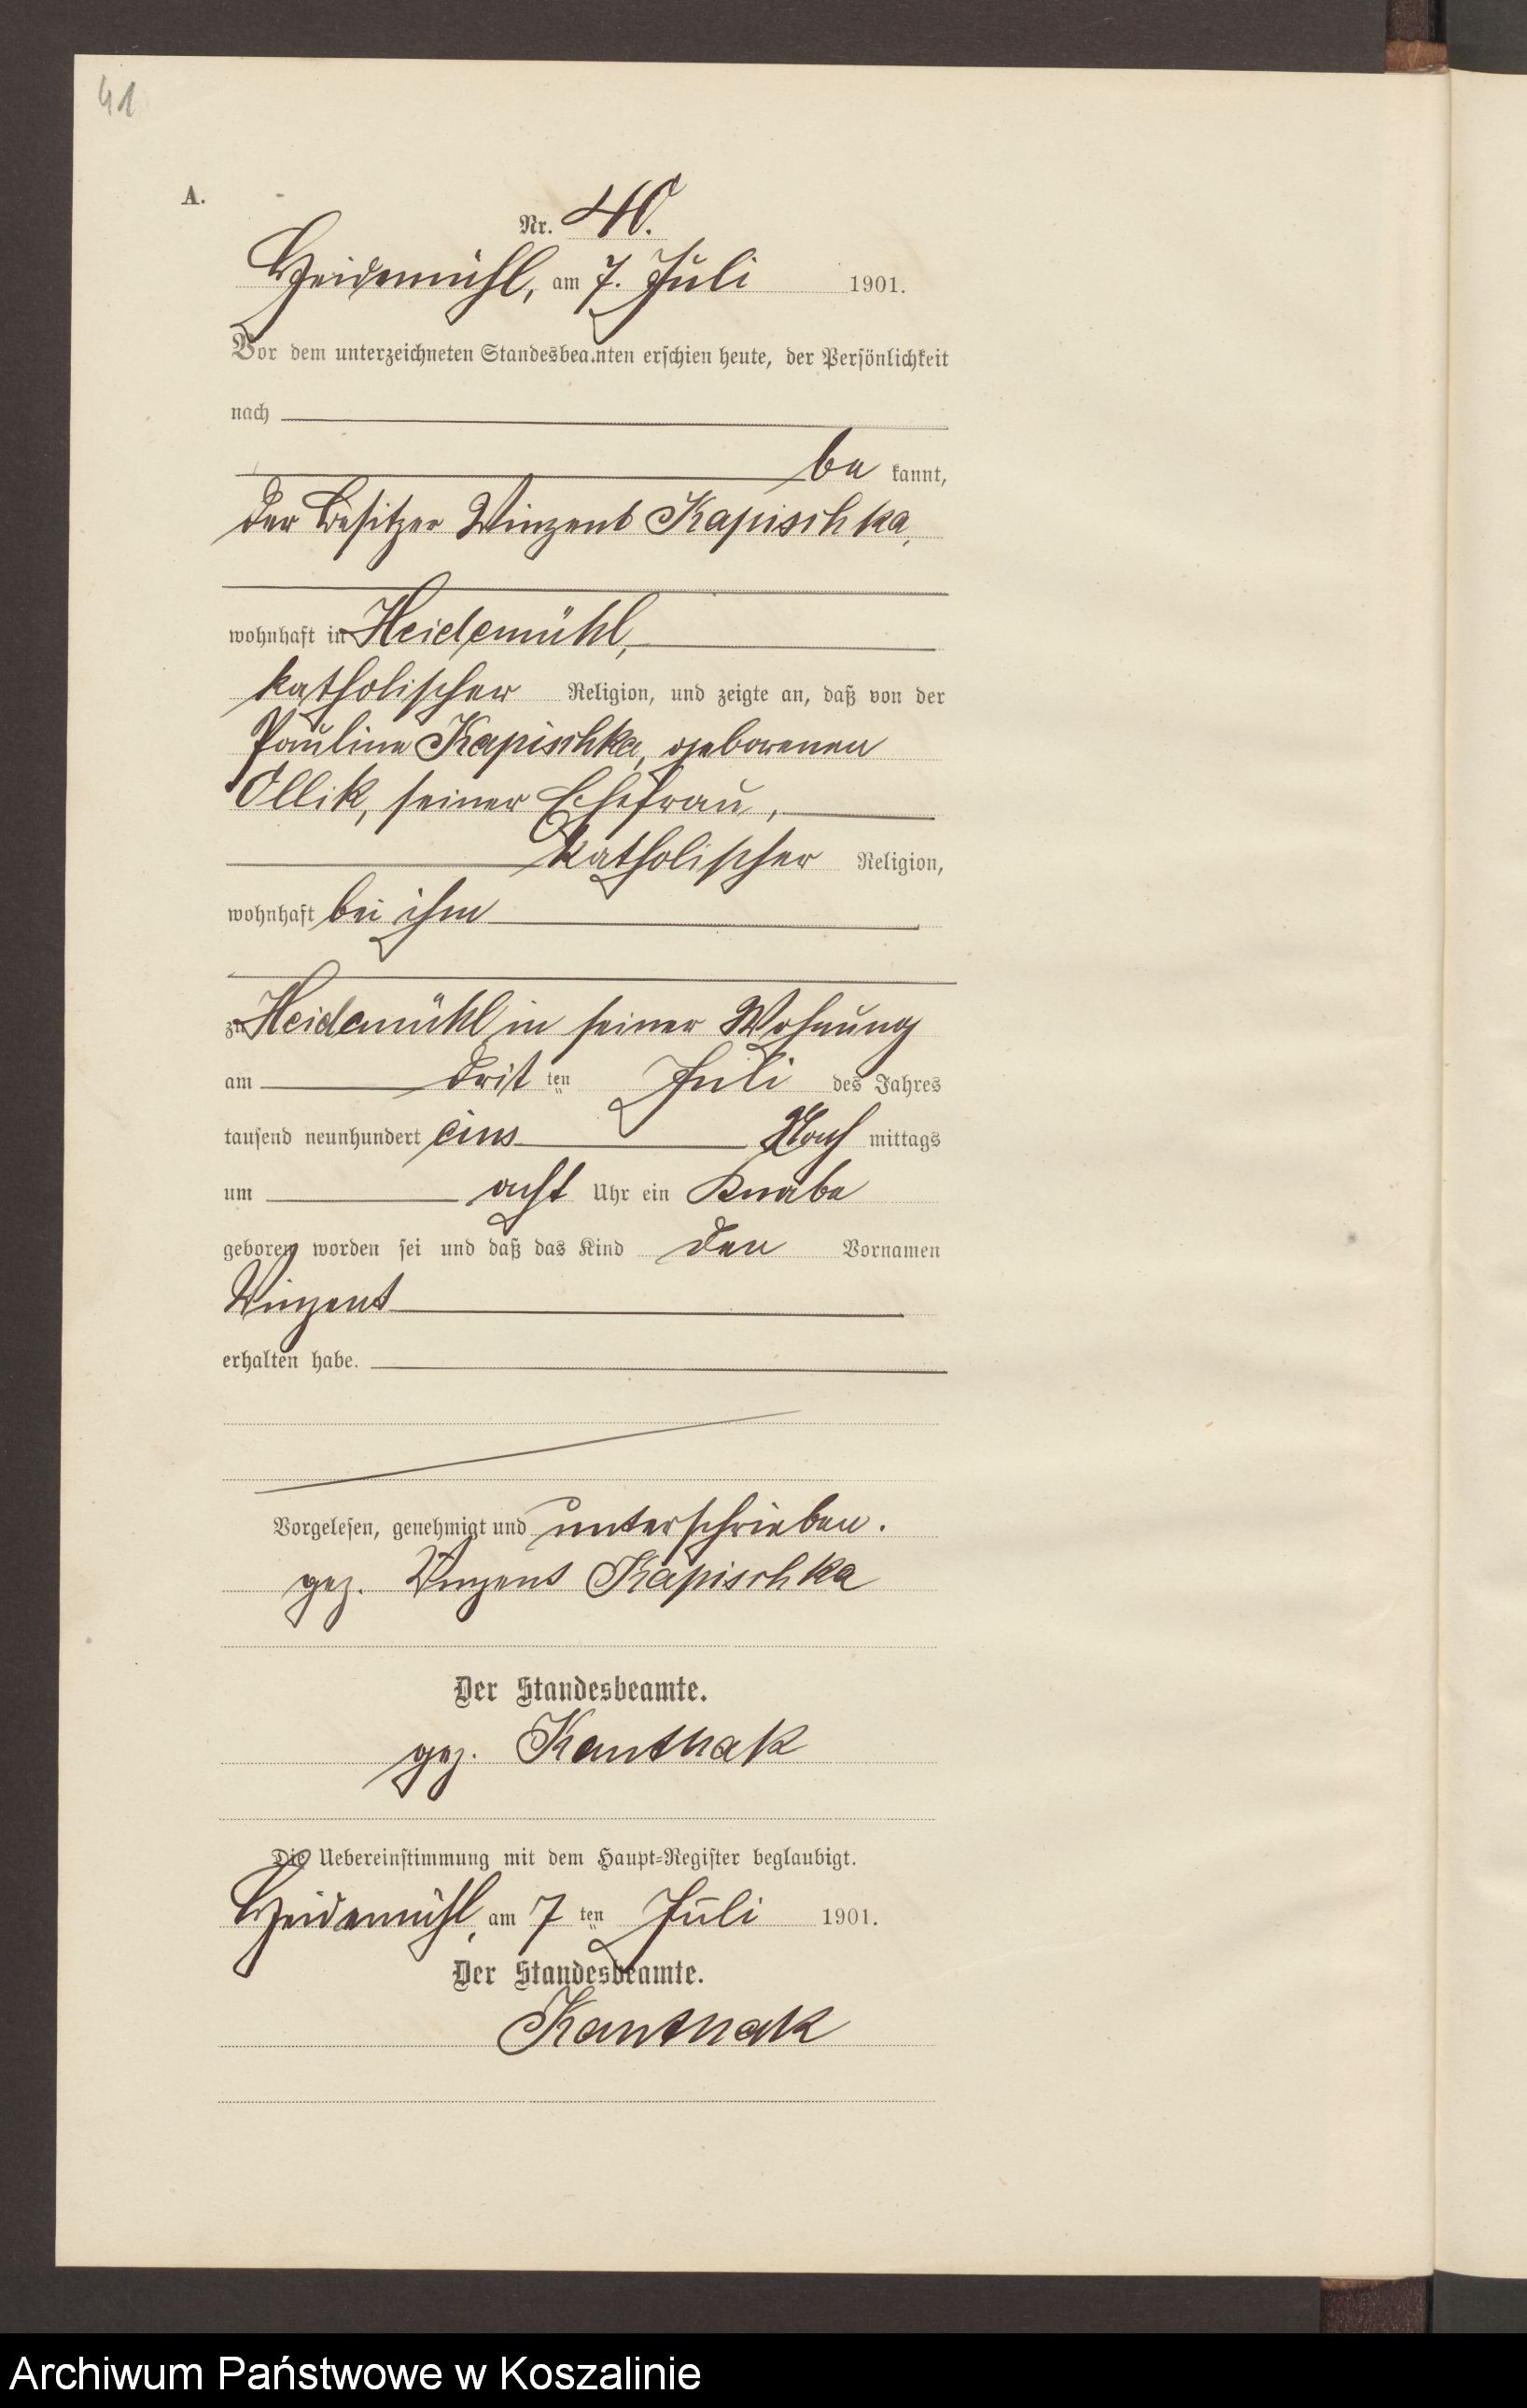 41
A.
Nr. 40.
Heidemühl, am 7. Juli 1901.
Vor dem unterzeichneten Standesbeamten erschien heute, der Persönlichkeit
nach
be kannt,
der Besitzer Winzent Kapischka,
wohnhaft in Heidemühl,
katholischer Religion, und zeigte an, daß von der
Pauline Kapischka, geborenen
Ollik, seiner Ehefrau,
katholischer Religion,
wohnhaft bei ihm
zu Heidemühl in seiner Wohnung
am dritten Juli des Jahres
tausend neunhundert eins Nach mittags
um acht Uhr ein Knabe
geboren worden sei und daß das Kind den Vornamen
Winzent
erhalten habe.
Vorgelesen, genehmigt und unterschrieben.
gez. Winzent Kapischka
Der Standesbeamte.
gez. Kanthak
Die Uebereinstimmung mit dem Haupt-Register beglaubigt.
Heidemühl, am 7 ten Juli 1901.
Der Standesbeamte.
Kanthak
Archiwum Państwowe w Koszalinie